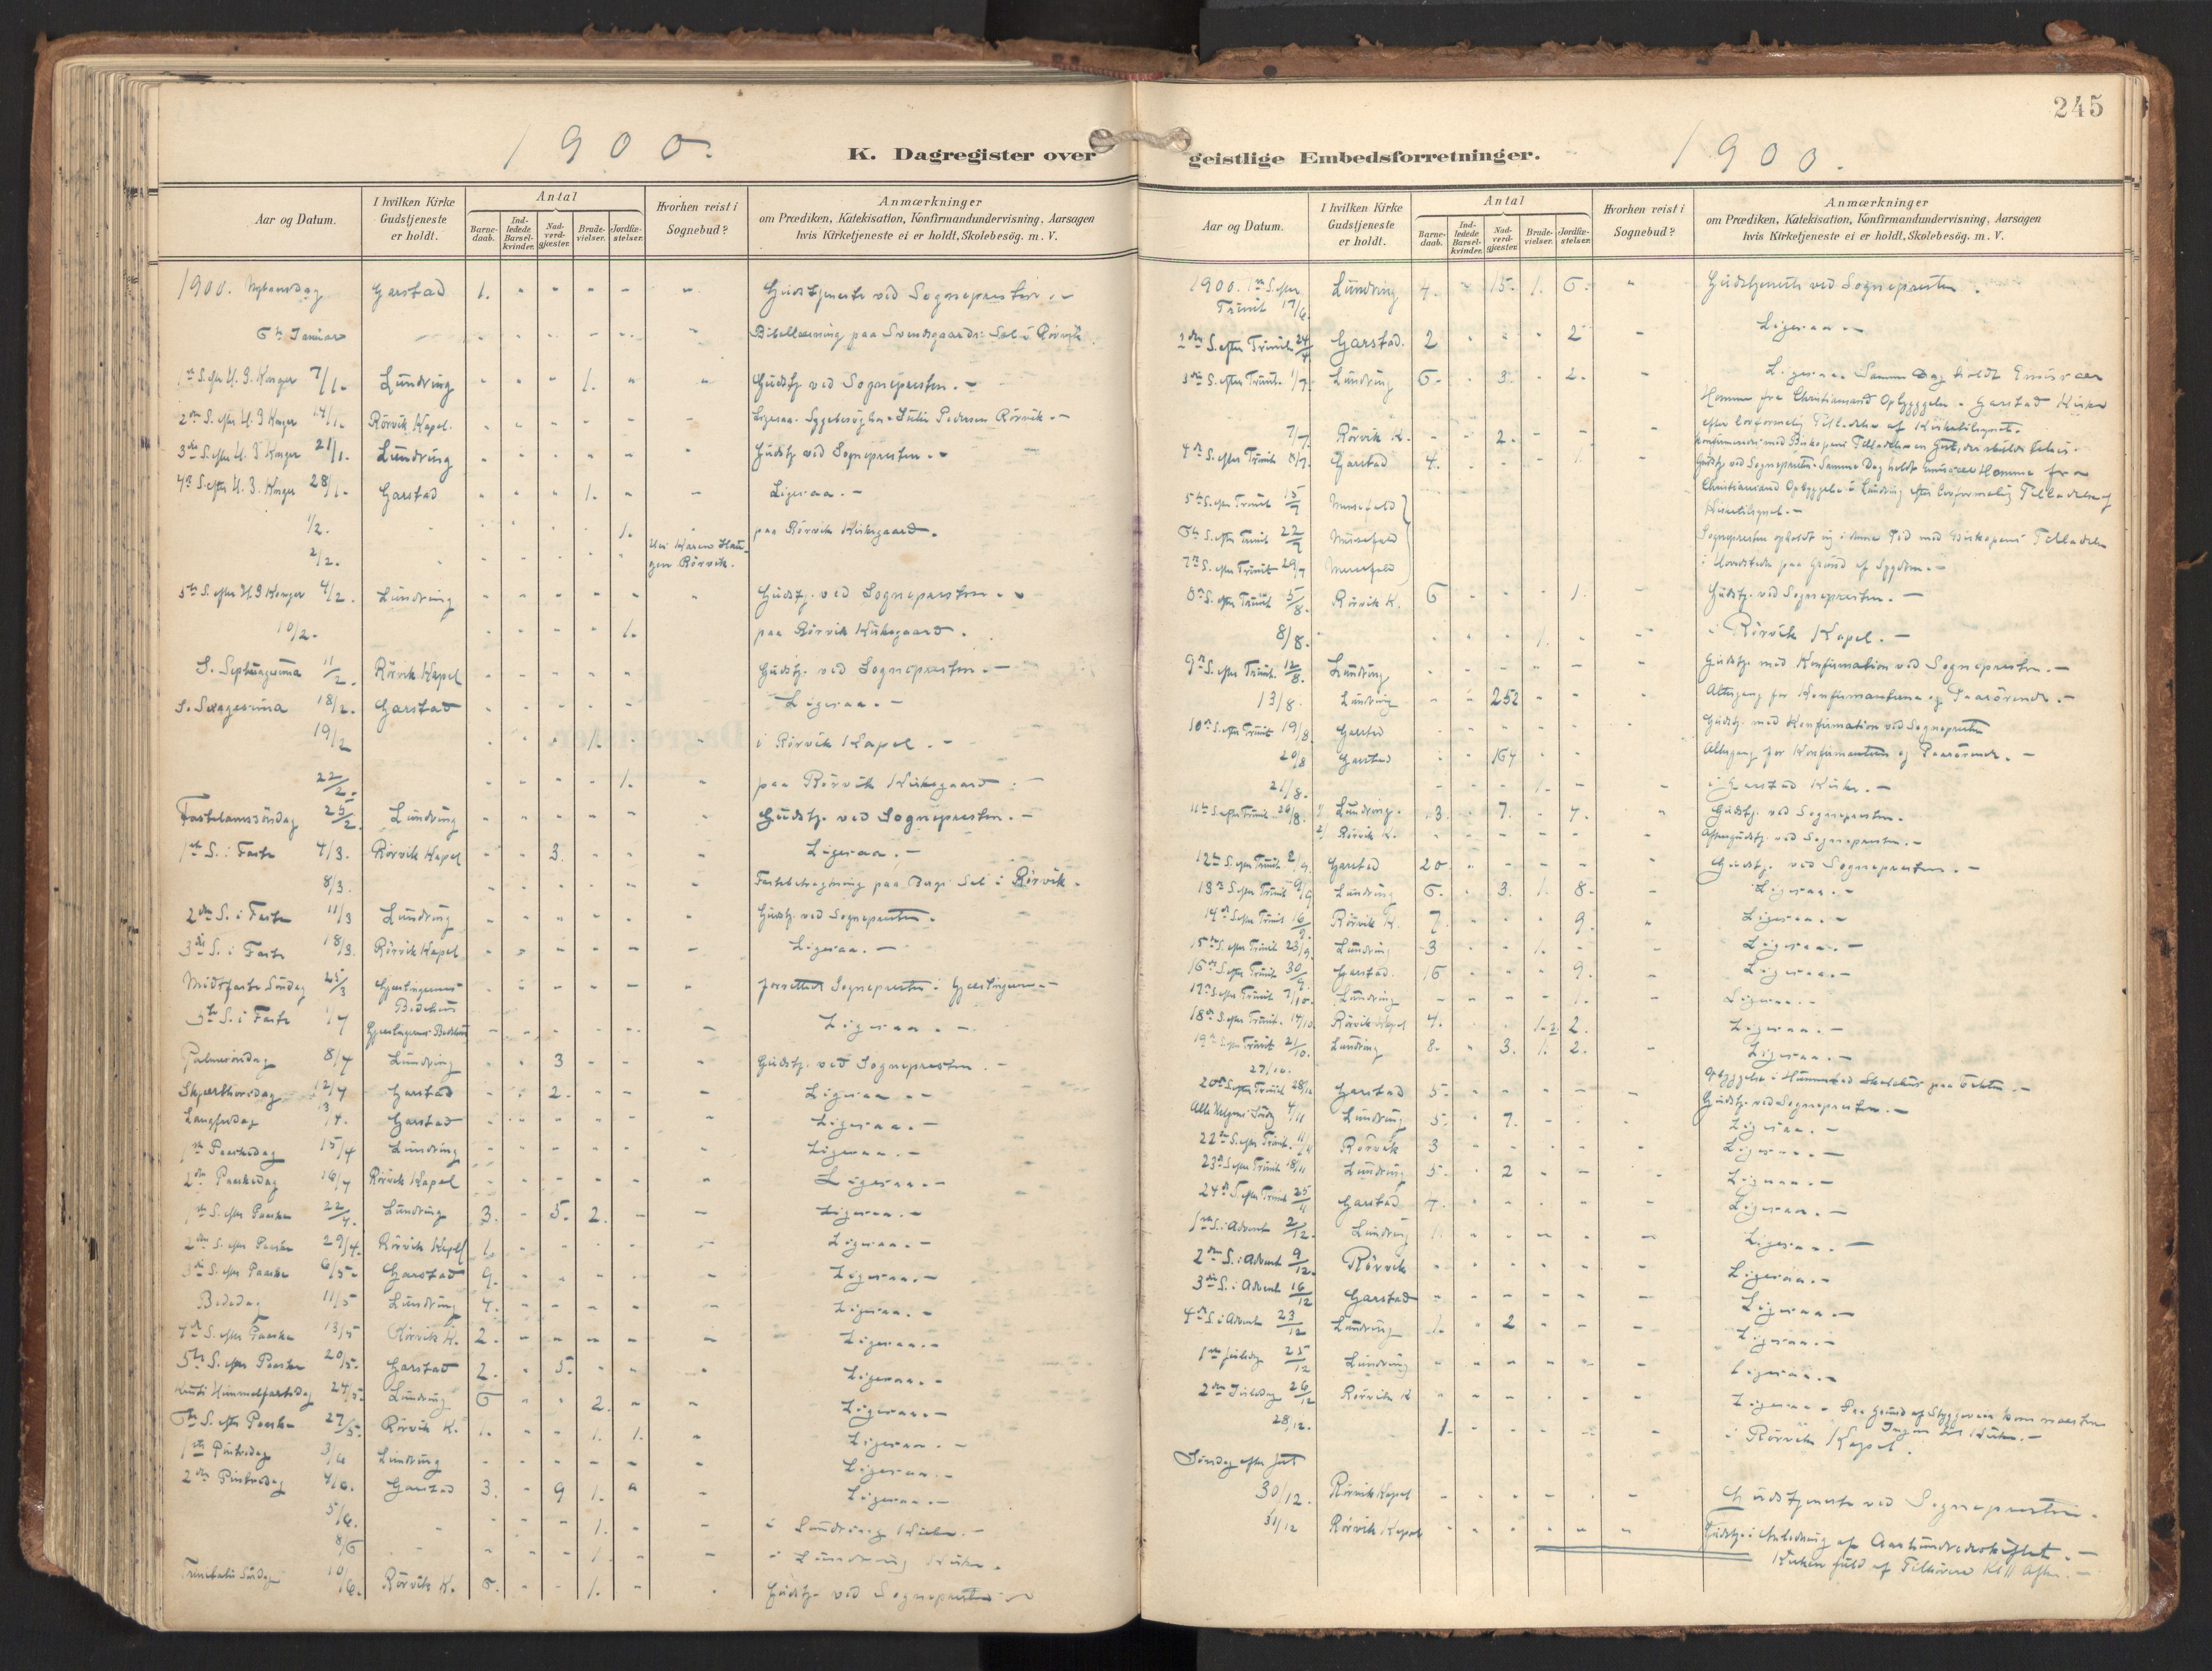 245
1900.
K. Dagregister over
geistlige Embedsforretninger.
1900.
Aar og Datum.
I hvilken Kirke Gudstjeneste er holdt.
Antal
Barnedaab.
Indledede Barselkvinder.
Nadverdgjæster.
Brudevielser.
Jordfæstelser.
Hvorhen reist i Sognebud?
Anmærkninger
om Prædiken, Katekisation, Konfirmandundervisning, Aarsagen
hvis Kirketjeneste ei er holdt, Skolebesög. m. V.
1900. Nytaarsdag Garstad 1. Gudstjeneste ved Sognepresten.
6te Januar Bibellæsning paa Svendsgaards Sal i Rörvik.
1ste S. efter H. 3 Konger 7/1. Lundring 1. Gudstj. ved Sognepresten.
2den S. efter H. 3 Konger 14/1. Rörvik Kapel. Ligesaa.
3die S. efter H. 3 Konger 21/1. Lundring Gudstj. ved Sognepresten.
4de S. efter H. 3. Konger 28/1. Garstad 1. Ligesaa.
1/2. 1. paa Rörvik Kirkegaard.
2/2. Rörvik.
5te S. efter H. 3 Konger 4/2. Lundring Gudstj. ved Sognepresten.
10/2. 1. paa Rörvik Kirkegaard.
S. Septuagesima 11/2. Rörvik Kapel Gudstj. ved Sognepresten.
S. Sexagesima 18/2. Garstad Ligesaa.
19/2 1. i Rörvik Kapel.
22/2. 1. paa Rörvik Kirkegaard.
Fastelavnssöndag 25/2. Lundring Gudstj. ved Sognepresten.
1ste S. i Faste 4/3. Rörvik Kapel 3. Ligesaa.
8/3. Fastebetragtning paa Bergs Sal i Rörvik.
2den S. i Faste 11/3 Lundring Gudstj. ved Sognepresten.
3die S. i Faste 18/3. Rörvik Kapel Ligesaa.
Midtfaste Söndag 25/3 Gjæslingernes Bedehus Sognepresten i Gjæslingerne.
5te S. i Faste 1/4 Gjæslingernes Bedehus Ligesaa.
Palmesöndag 8/4 Lundring 3 Gudstj. ved Sognepresten.
Skjærthorsdag 12/4 Garstad 2. Ligesaa.
Langfredag 13/4. Garstad Ligesaa.
1ste Paaskedag 15/4 Lundring Ligesaa.
2den Paaskedag 16/4 Rörvik Kapel Ligesaa.
1ste S. efter Paaske 22/4. Lundring 3. 5. 2. Ligesaa.
2den S. efter Paaske 29/4. Rörvik Kapel 1. Ligesaa.
3die S. efter Paaske 6/5 Garstad 9. Ligesaa.
Bededag 11/5 Lundring 4. Ligesaa.
4de S. efter Paaske 13/5 Rörvik K. 2. Ligesaa.
5te S. efter Paaske 20/5. Garstad 2. 5. Ligesaa.
Kristi Himmelfartsdag 24/5. Lundring 6 2. Ligesaa.
6te S. efter Paaske 27/5. Rörvik K. 1. 1. 1. Ligesaa.
1ste Pintsedag 3/6 Lundring Ligesaa.
2den Pintsedag 4/6. Garstad 3. 9 1. Ligesaa.
5/6. 1. i Lundring Kirke.
8/6 1. i Lundring Kirke.
Trinitatis Söndag 10/6. Rörvik K. 1. Gudstj. ved Sognepresten
Aar og Datum.
I hvilken Kirke Gudstjeneste er holdt.
Antal
Barnedaab.
Indledede Barselkvinder.
Nadverdgjæster.
Brudevielser.
Jordfæstelser.
Hvorhen reist i Sognebud?
Anmærkninger
om Prædiken, Katekisation, Konfirmandundervisning, Aarsagen
hvis Kirketjeneste ei er holdt, Skolebesög. m. V.
1900. 1ste S. efter Trinit 17/6 Lundring 4. 15. 1. 6. Gudstjeneste ved Sognepresten.
2den S. efter Trinit. Garstad. 2 2 Ligesaa
3die S. efter Trinit. 1/7. Lundring 6. 3. 2. Ligesaa. Samme Dag holdt Emissær
Homme fra Christiansand Opbyggelse i Garstad Kirke
efter lovformelig Tilladelse af Kirketilsynet.
7/7 Rörvik K. 2.
4de S. efter Trinit 8/7. Garstad 4. 1. Gudstj. ved Sognepresten. Samme Dag holdt Emissær Homme fra
Christiansand Opbyggelse i Lundring efter lovformelig Tilladelse af
Kirketilsynet.
5te S. efter Trinit 15/7
6te S. efter Trinit 22/7 Sognepresten opholdt sig i denne Tid med Biskopens Tilladelse
7de S. efter Trinit 29/7 i Hovedstaden paa Grund af Sygdom.
8de S. efter Trinit 5/8. Rörvik K. 6 1. Gudstj. ved Sognepresten.
8/8. 1. i Rörvik Kapel.
9de S. efter Trinit. 12/8. Lundring Gudstj. med Konfirmation ved Sognepresten.
13/8. Lundring 252 Altergang for Konfirmanterne og Paarörende.
10de S. efter Trinit 19/8. Garstad Gudstj. med Konfirmation ved Sognepresten
20/8 Garstad 164 Altergang for Konfirmanterne og Paarörende.
21/8. 1. i Garstad Kirke.
11te S. efter Trinit 26/8. 1) Lundring. 3. 7. 7. Gudstj. ved Sognepresten.
2) Rörvik K. Aftengudstj. ved Sognepresten.
12te S. efter Trinit 2/9. Garstad 20 Gudstj. ved Sognepresten.
13de S. efter Trinit 9/9 Lundring 6. 3. 1. 8. Ligesaa.
14de S. efter Trinit. 16/9 Rörvik K. 7. 9. Ligesaa.
15de S. efter Trinit 23/9. Lundring 3 1. Ligesaa.
16de S. efter Trinit 30/9. Garstad. 16 9. Ligesaa.
17de S. efter Trinit 7/10. Lundring 1. Ligesaa.
18de S. efter Trinit. 14/10 Rörvik Kapel 4. 2. Ligesaa.
19de S. efter Trinit 21/10. Lundring 8. 3. 1. 2. Ligesaa.
27/10. Opbyggelse i Skolehus paa
20de S. efter Trinit 28/10 Garstad 5. Gudstj. ved Sognepresten.
Alle Helgens Söndag 4/11 Lundring 5. 7. Ligesaa.
22de S. efter Trinit. 11/11 Rörvik 3 Ligesaa.
23de S. efter Trinit 18/11 Lundring 5. 2 Ligesaa.
24de S. efter Trinit 25/11 Garstad 4. Ligesaa.
1ste S. i Advent 2/12. Lundring 1. Ligesaa.
2den S. i Advent 9/12. Rörvik Ligesaa.
3die S. i Advent 16/12 Garstad Ligesaa.
4de S. i Advent 23/12 Lundring 1. 2 Ligesaa.
1ste Juledag 25/12 Lundring Ligesaa.
2den Juledag 26/12 Rörvik K Ligesaa. Paa Grund af Styggeveir kom næsten
Ingen til Kirke.
28/12. 1. i Rörvik Kapel.
Söndag efter Jul
30/12. Rörvik Kapel Gudstjeneste ved Sognepresten.
31/12 Rörvik Kapel Gudstj. i Anledning af Aarhundredeskiftet.
Kirken fuld af Tilhörere Kl 11 Aften.